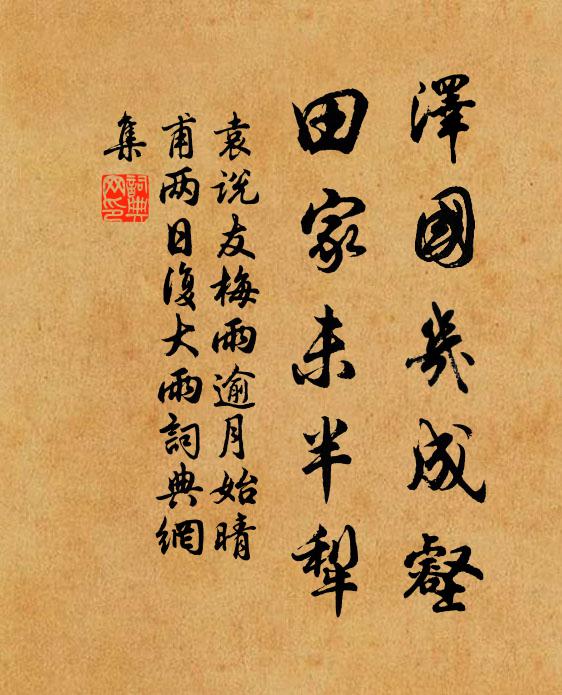 澤國幾成壑
田家未半犁
袁说友梅雨逾月始晴
甫两日復大雨詞典網
集
詞典网印